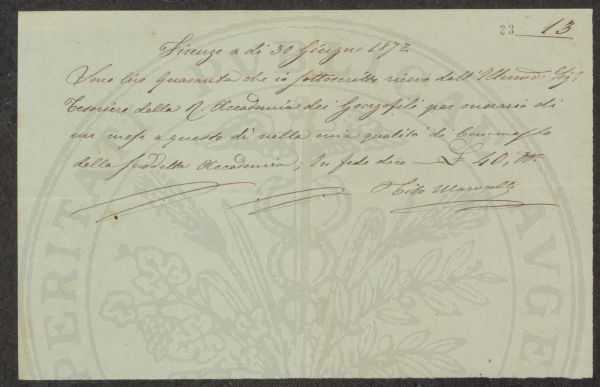 23 13
Firenze a dì 30 Giugno 1872
Sono lire quaranta che io sottoscritto ricevo dall' Illmo: Sig:
Tesoriere della R. Accademia dei Georgofili per onorario di
un mese a questo dì nella mia qualità di Commesso
della suddetta Accademia; In fede dico £ 40,
Tito
PROSPERITATI PUBLICAE AUGE